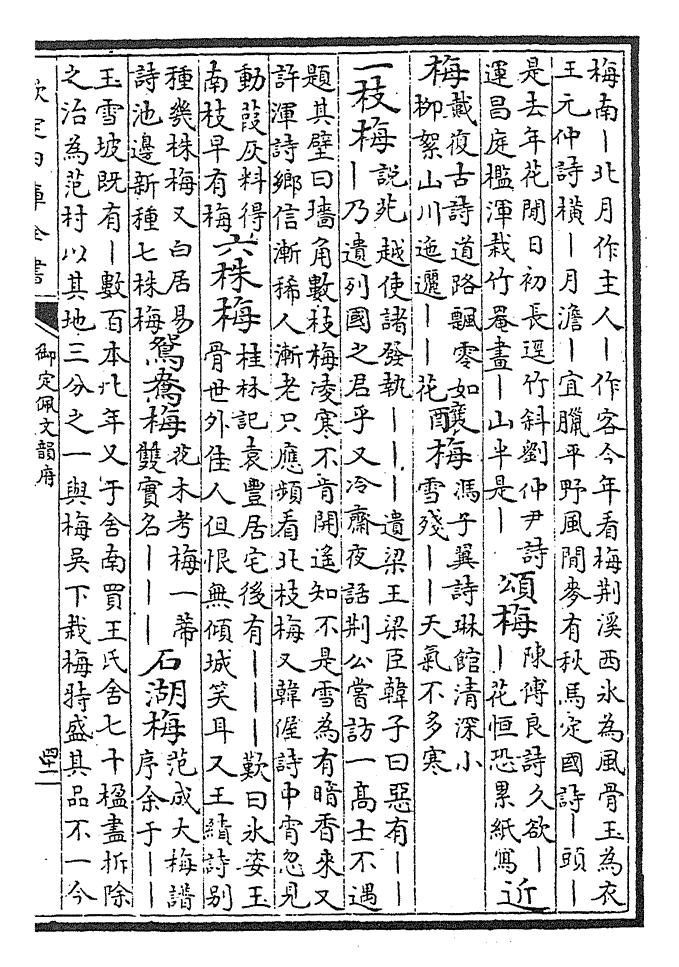 梅南｜北月作主人｜作客今年看梅荆溪西氷為風骨玉為衣
王元仲詩横｜月澹｜宜臘平野風閒麥有秋馬定國詩｜頭｜
是去年花閒日初長逕竹斜劉仲尹詩
運昌庭檻渾栽竹罨畫｜山半是｜
頌梅
陳傅良詩久欲｜
｜花恒恐累紙寫
近
梅
戴復古詩道路飄零如
柳絮山川迤邐｜｜花
釀梅
馮子翼詩琳館清深小
雪殘｜｜天氣不多寒
一枝梅
說苑越使諸發執｜｜｜遺梁王梁臣韓子曰惡有｜｜
｜乃遺列國之君乎又冷齋夜話荆公嘗訪一髙士不遇
題其壁曰墻角數枝梅凌寒不肯開遙知不是雪為有暗香來又
許渾詩鄉信漸稀人漸老只應頻看北枝梅又韓偓詩中宵忽見
動葭灰料得
南枝早有梅
六株梅
桂林記袁豐居宅後有｜｜｜歎曰氷姿玉
骨世外佳人但恨無傾城笑耳又王績詩别
種幾株梅又白居易
詩池邊新種七株梅
鴛鴦梅
花木考梅一蒂
雙實名｜｜｜
石湖梅
范成大梅譜
序余于｜｜
玉雪坡既有｜數百本比年又于舍南買王氏舍七十楹盡拆除
之治為范村以其地三分之一與梅吳下栽梅特盛其品不一今
欽定四庫全書
御定佩文韻府
四十一